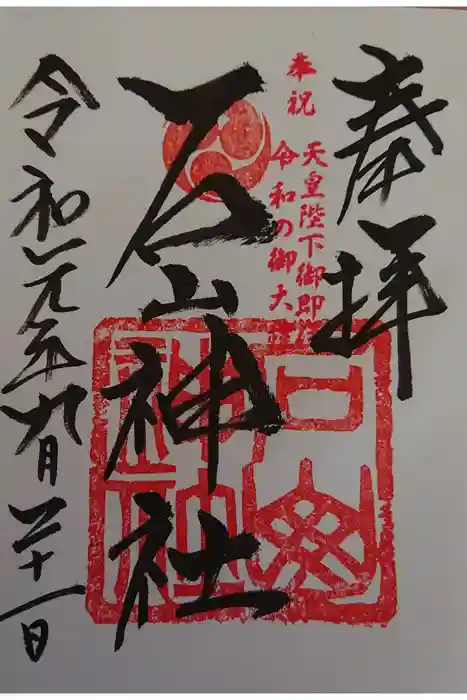 奉拝
奉祝 天皇陛下御即位
令和の御大礼
石山神社
令和元年九月二十一日